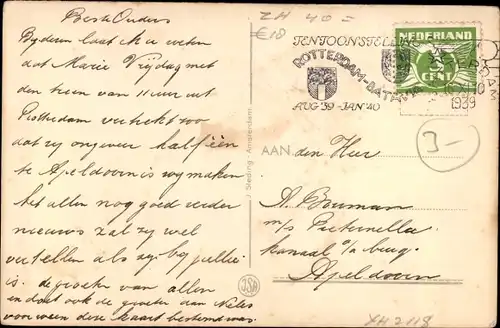 Beste Ouders
Bij dezen laat ik u weten
dat Marie Vrijdag met
den trein van 11 uur uit
Rotterdam vertrekt zoo
dat zij ongeveer half één
te Apeldoorn is wij maken
het allen nog goed verder
nieuws zal zij wel
vertellen als zij bij jullie
is. de groeten van allen
en dan ook de groeten aan Neles
voor wien deze kaart bestemd was.
ZH 40 =
€18
TENTOONSTELLING
ROTTERDAM-BATAVIA
AUG '39 - JAN '40
NEDERLAND
CENT
1939
3-
AAN den Heer
A. Bouman
m/s Pieternella
kanaal o/a brug
Apeldoorn
Sleding - Amsterdam
JSA
ZH 2118